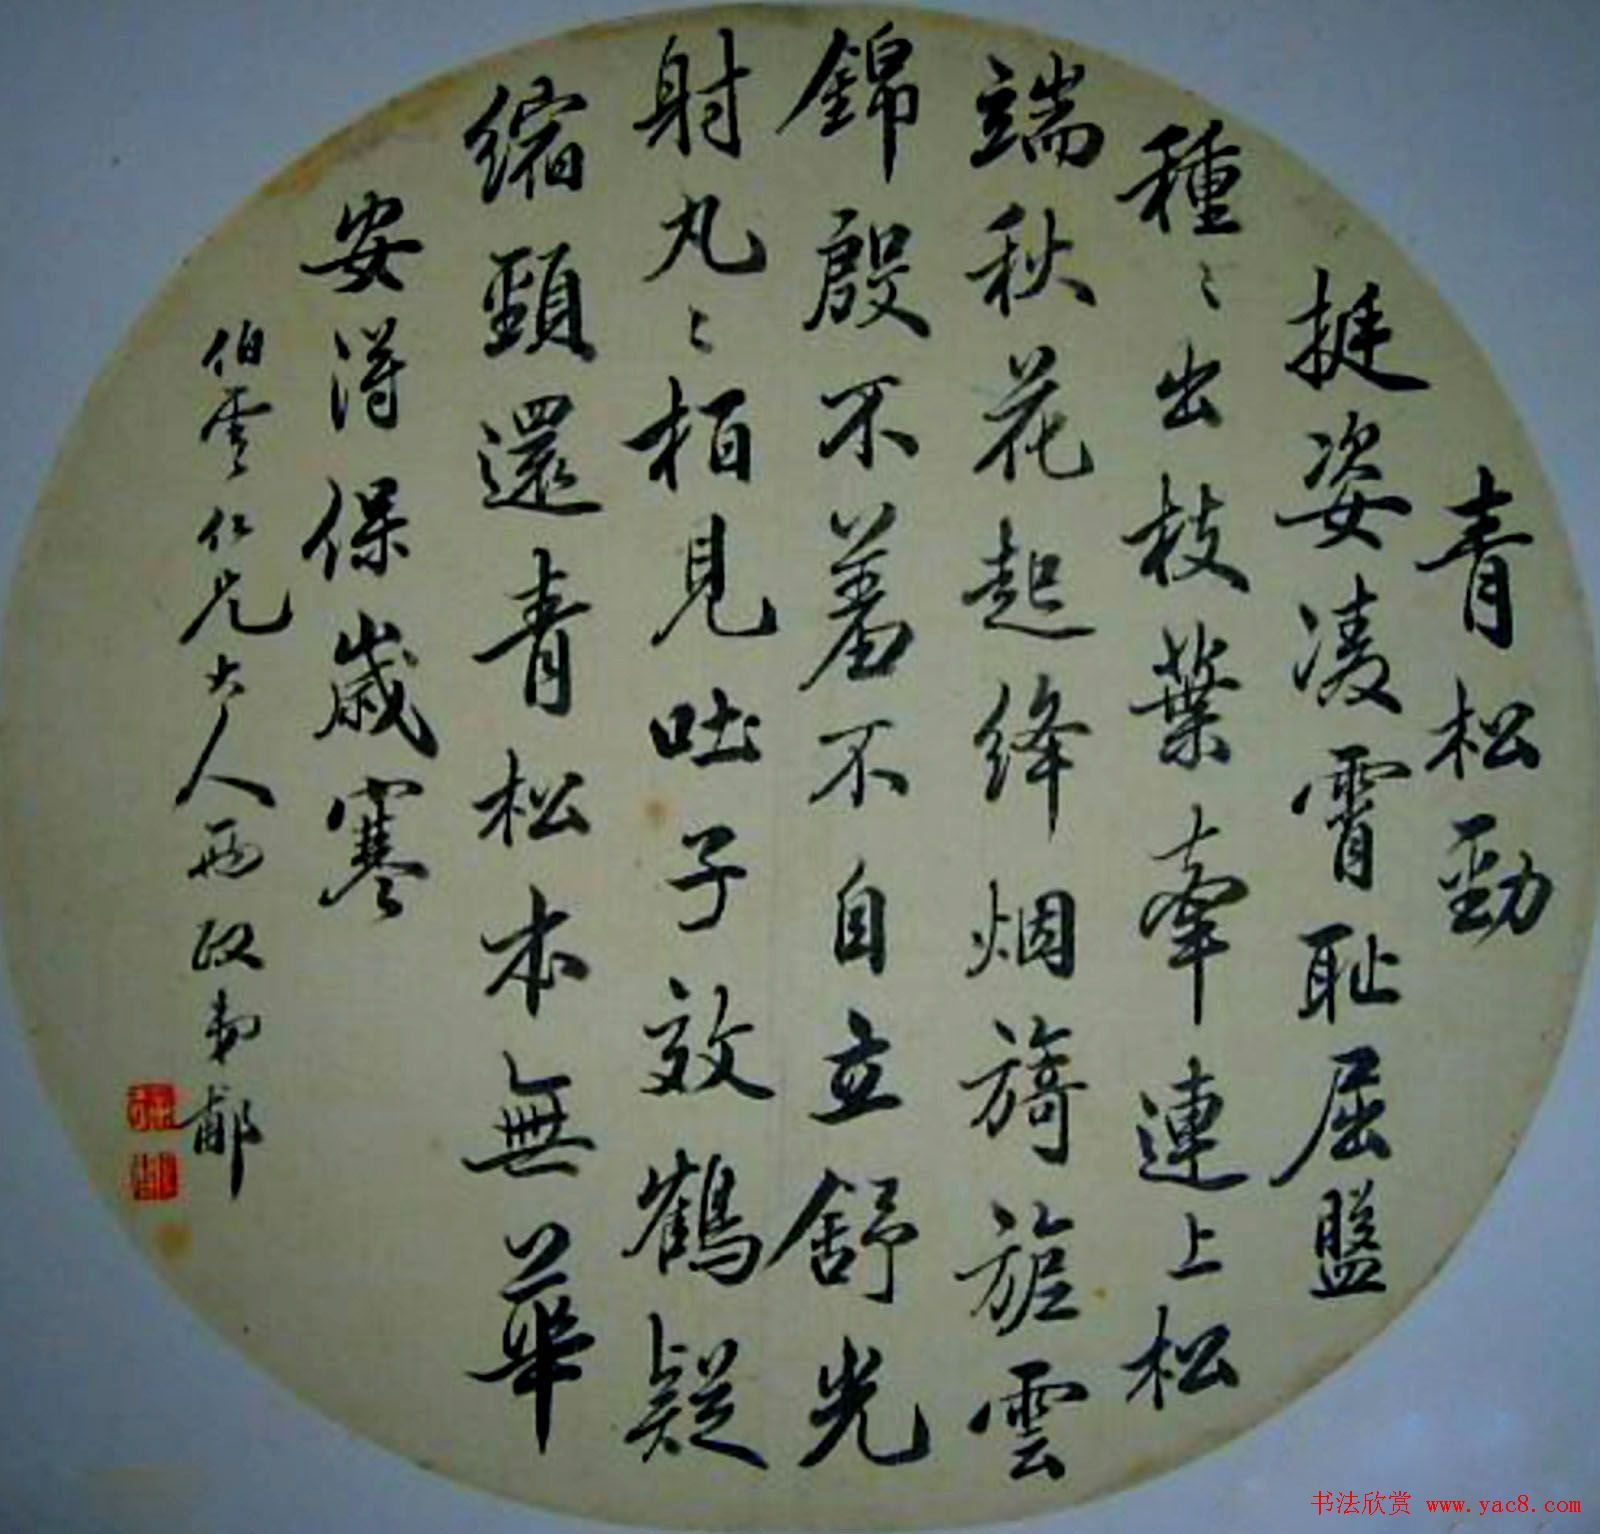 青松勁
挺姿凌霄恥屈盤
種〻出枝葉牽連上松
端秋花起絳烟旖旎雲
錦殷不羞不自立舒光
射丸〻柏見吐子效鶴疑
縮頸還青松本無華
安得保歲寒
伯雲仁兄大人兩政弟
书法欣赏 www.yac8.com